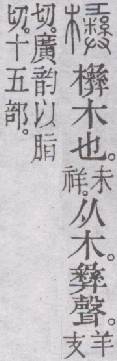 木也。未祥。从木。彝聲。羊支
切。廣韵以脂
切。十五部。